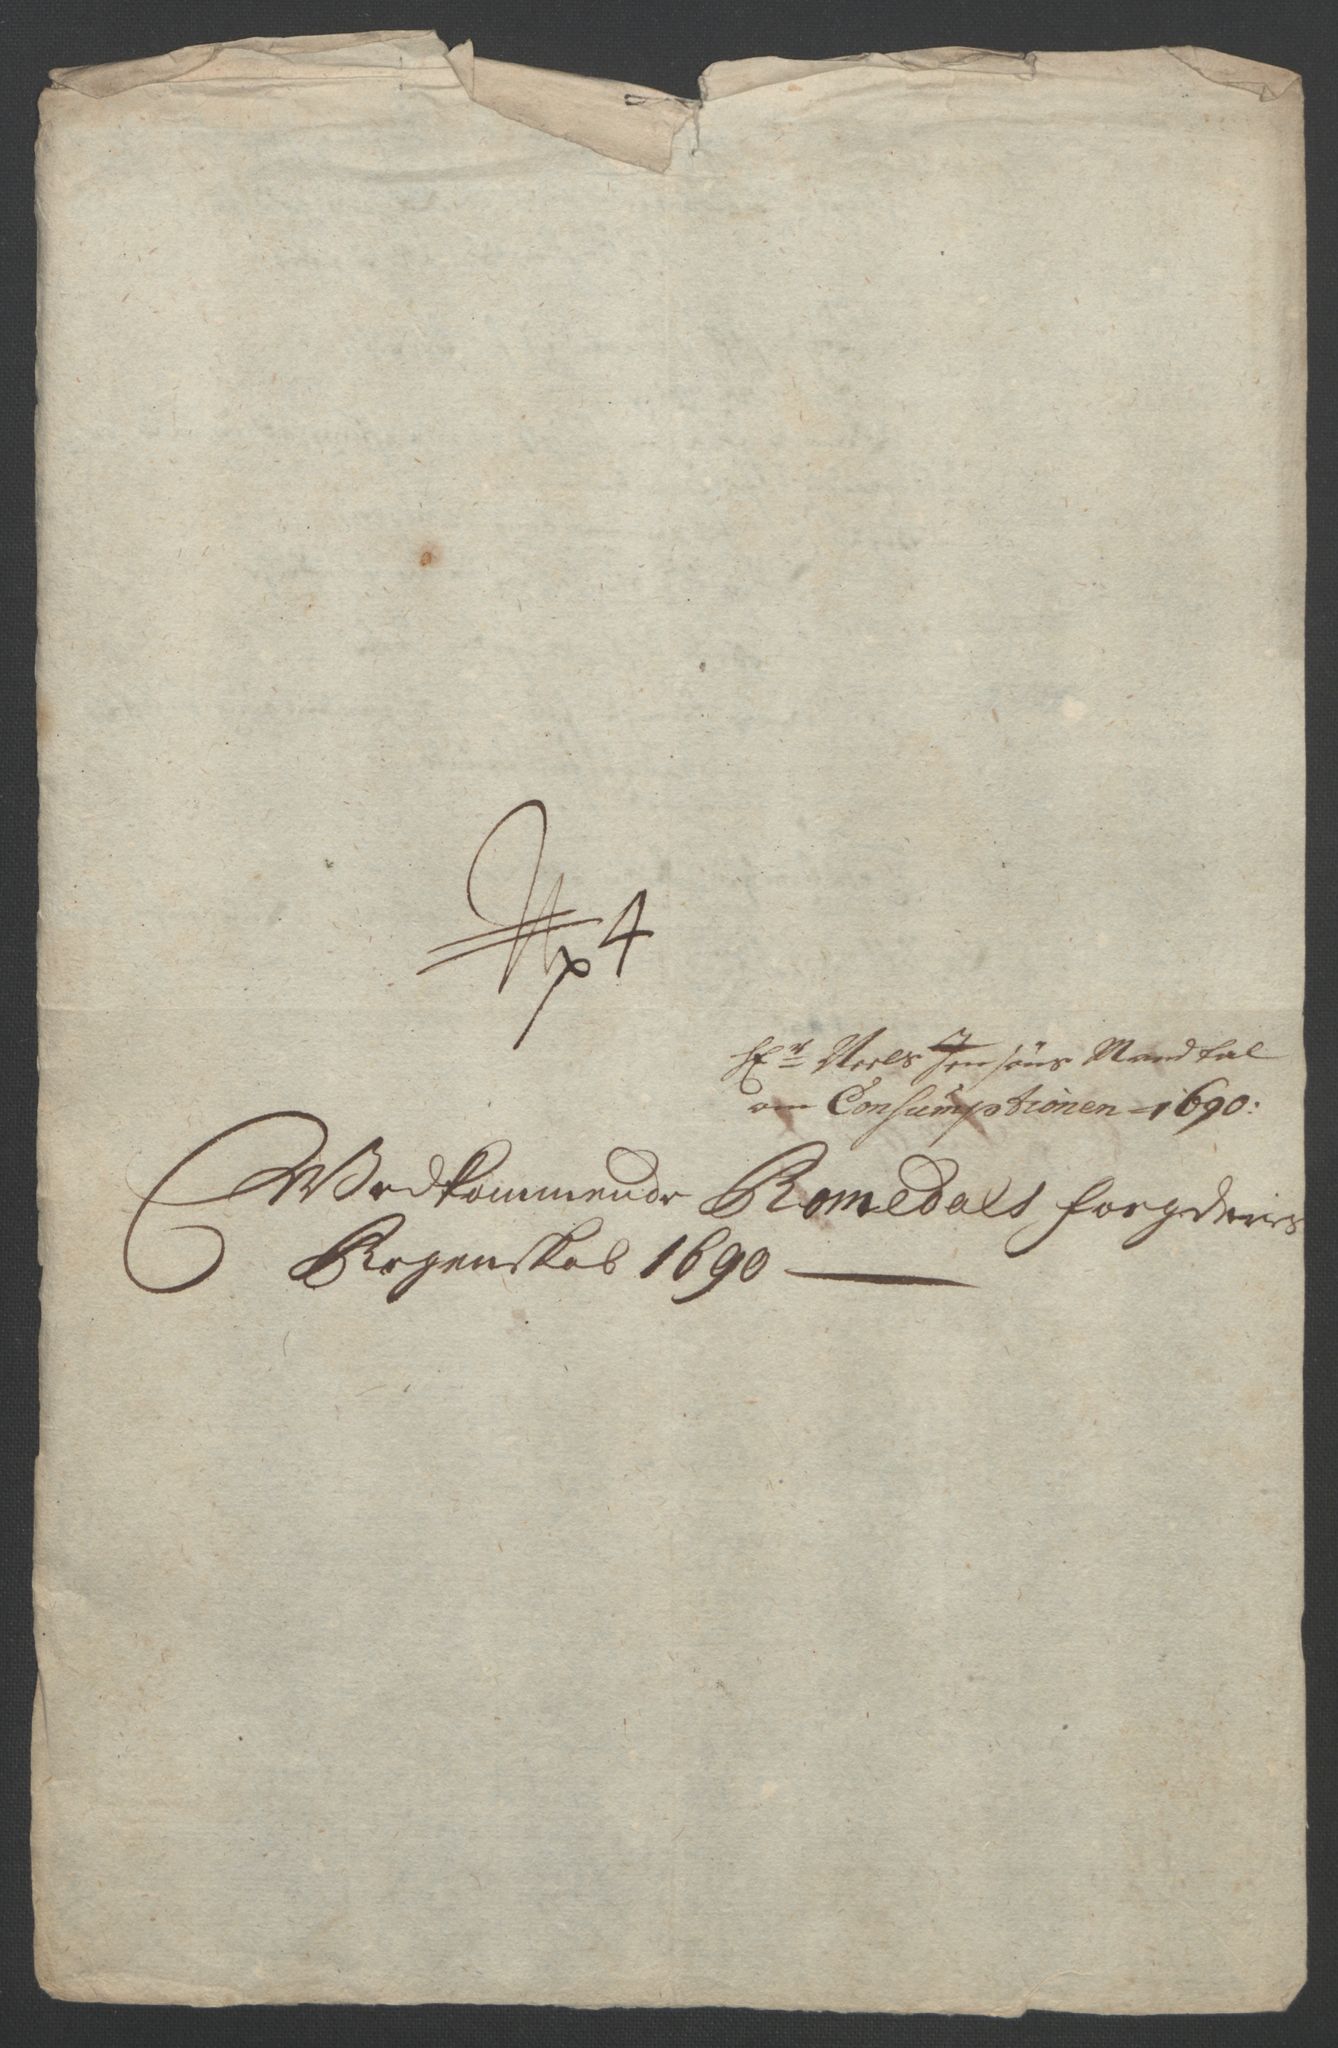 No 4
Hr Niels Jensøns Mandtal
om Consumptionen - 1690:
Vedkommende Romsdals fogderies
Regenskab 1690